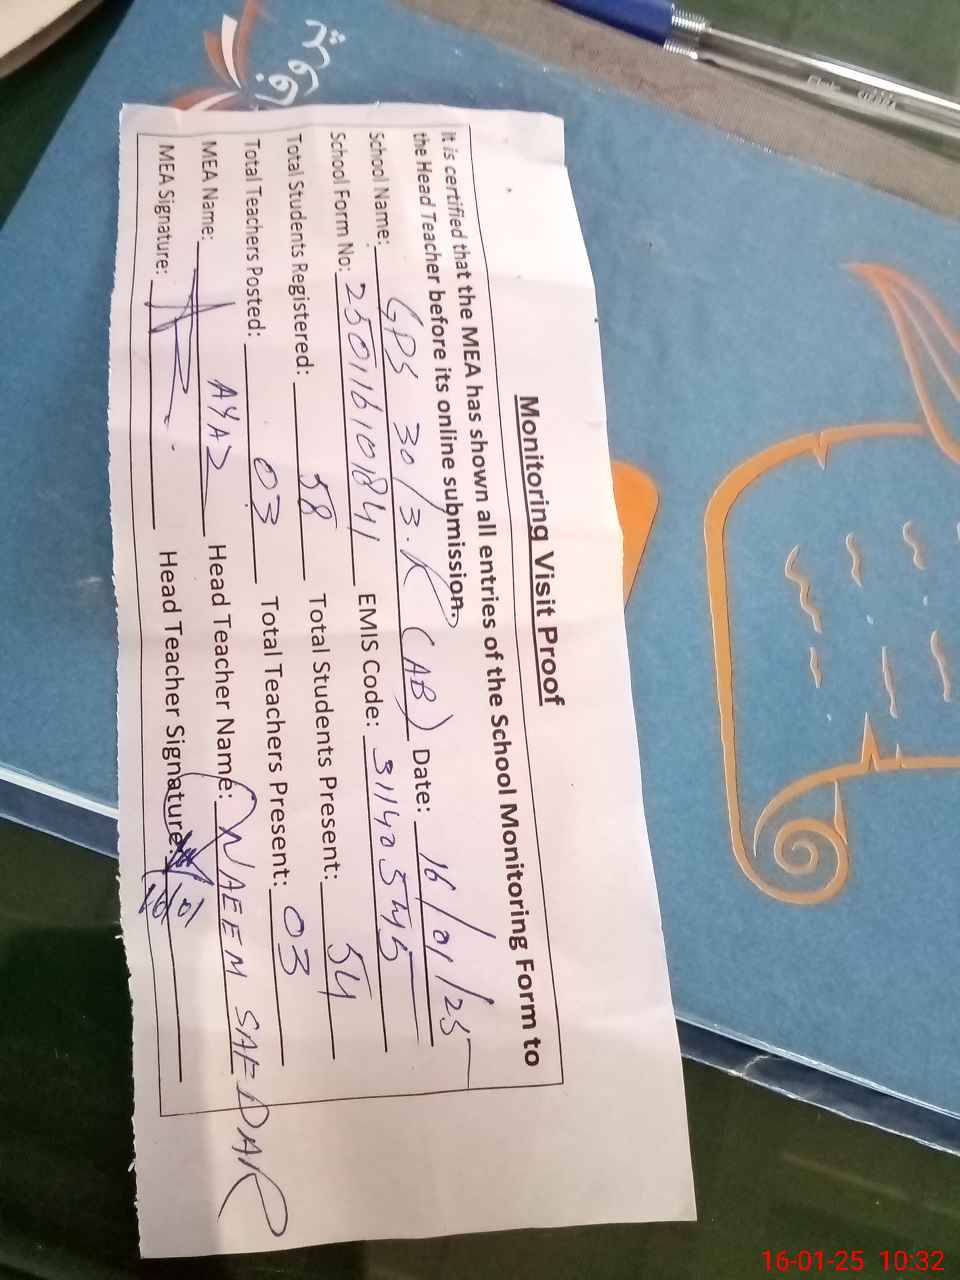 Monitoring Visit Proof
It is certified that the MEA has shown all entries of the School Monitoring Form to
the Head Teacher before its online submission.
School Name: GPS 30/3.R (AB) Date: 16/01/25
School Form No: 250116101841 EMIS Code: 31140545
Total Students Registered: 58 Total Students Present: 54
Total Teachers Posted: 03 Total Teachers Present: 03
MEA Name: AYAZ Head Teacher Name: NAEEM SAFDAR
MEA Signature: Head Teacher Signature:
16-01-25 10:32